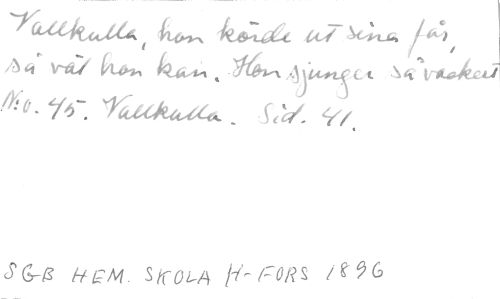 Vallkulla, hon körde ut sina får,
så väl hon kan. Hon sjunger så vackert
N:o. 45. Vallkulla. Sid. 41.
SGB HEM. SKOLA H-FORS 1896